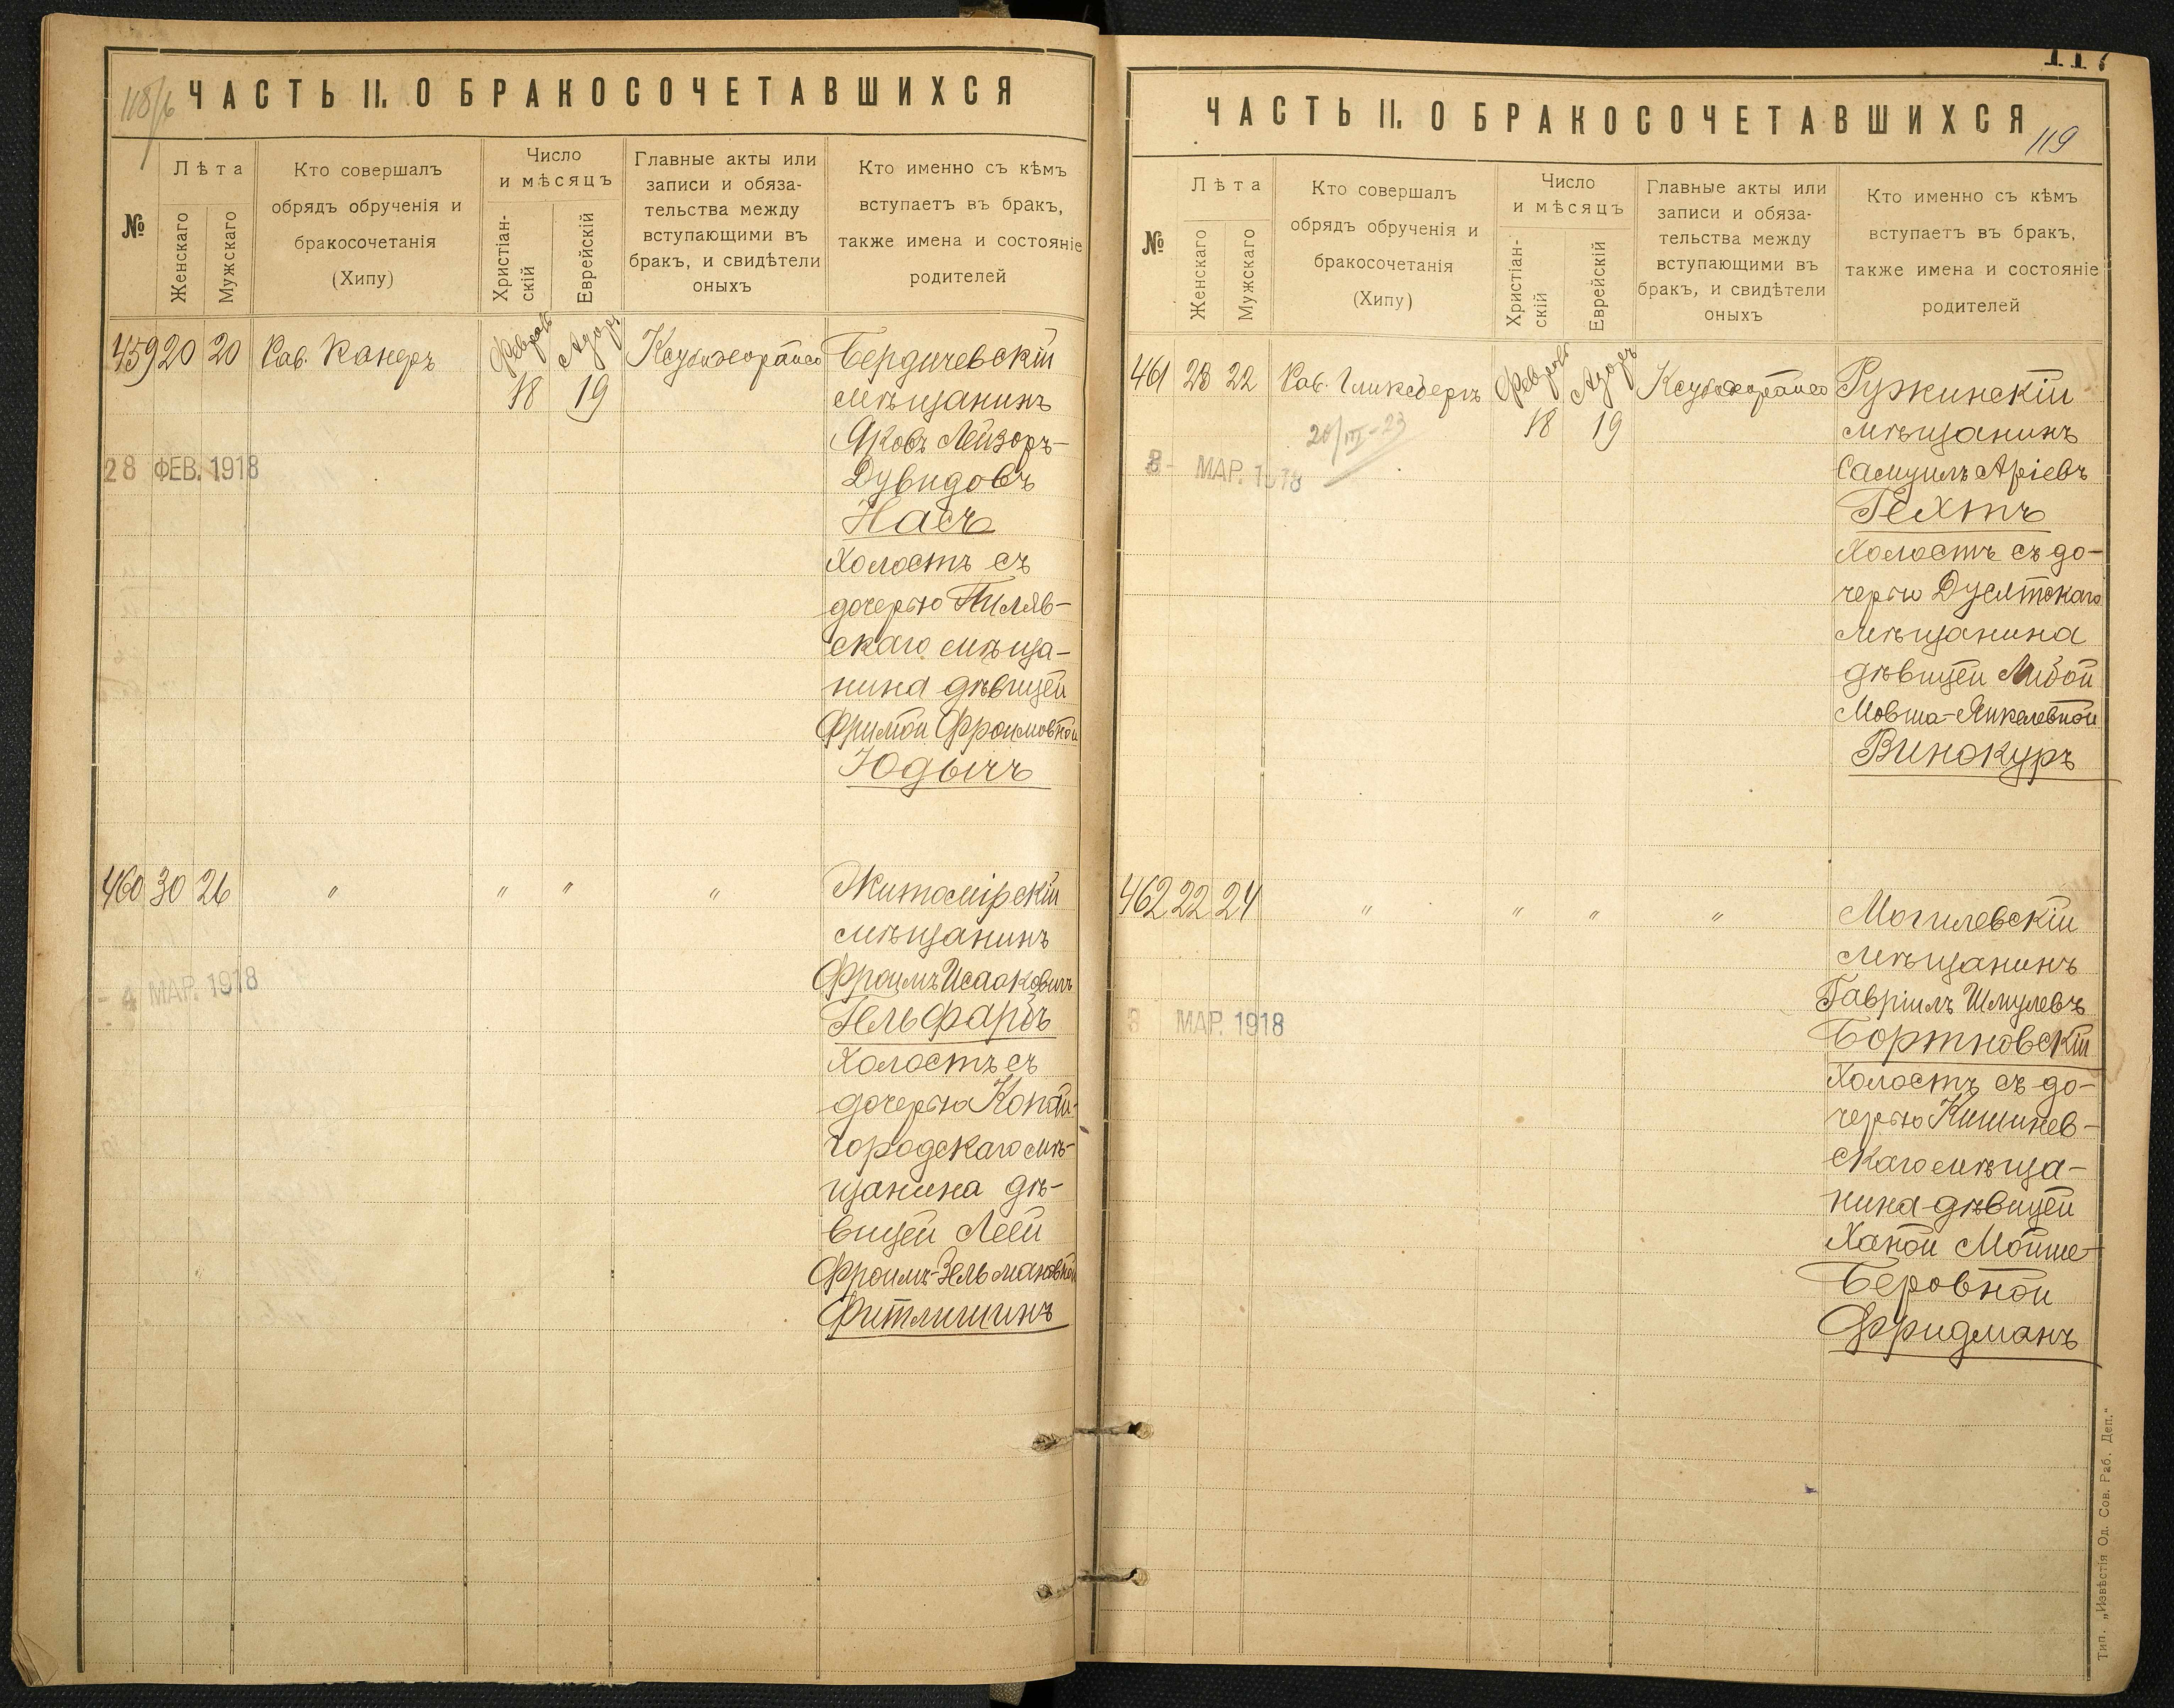 118/б
ЧАСТЬ II. О БРАКОСОЧЕТАВШИХСЯ
№
Лѣта
Женскаго
Мужскаго
Кто совершалъ
обрядъ обрученія и
бракосочетанія
(Хипу)
Число
и мѣсяцъ
Христіан-
скій
Еврейскій
Главные акты или
записи и обяза-
тельства между
вступающими въ
бракъ, и свидѣтели
оныхъ
Кто именно съ кѣмъ
вступаетъ въ бракъ,
также имена и состояніе
родителей
459 20 20 Рав. Канеръ Февраль 18 Адаръ 19 Бердичевскій
мѣщанинъ
Яковъ Лейзоръ-
28 ФЕВ. 1918
Дувидовъ
Насъ
Холостъ съ
дочерью Пиляв-
скаго мѣща-
нина дѣвицей
Фримой Фроимовной
Юдычъ
460 30 26 " " " " Житомірскій
мѣщанинъ
Фроимъ Исааковичъ
- 4 МАР. 1918
Гельфарбъ
Холостъ съ
дочерью Копай-
городскаго мѣ-
щанина дѣ-
вицей Леей
Фроимъ-Зельмановной
Фитлишинъ
117
ЧАСТЬ II. О БРАКОСОЧЕТАВШИХСЯ
119
№
Лѣта
Женскаго
Мужскаго
Кто совершалъ
обрядъ обрученія и
бракосочетанія
(Хипу)
Число
и мѣсяцъ
Христіан-
скій
Еврейскій
Главные акты или
записи и обяза-
тельства между
вступающими въ
бракъ, и свидѣтели
оныхъ
Кто именно съ кѣмъ
вступаетъ въ бракъ,
также имена и состояніе
родителей
461 23 22 Рав. Гликсбергъ Февраль 18 Адаръ 19 Ружинскій
20/III-23
мѣщанинъ
МАР. 1918
Самуилъ Аріевъ
Гехтъ
Холостъ съ до-
черью Дусятскаго
мѣщанина
дѣвицей Либой
Мовша-Янкелевной
Винокуръ
462 22 24 " " " " Могилевскій
мѣщанинъ
Гавріилъ Шмулевъ
3 МАР. 1918
Бортновскій
Холостъ съ до-
черью Кишинев-
скаго мѣща-
нина дѣвицей
Ханой Мойше-
Беровной
Фридманъ
Тип. „Извѣстія Од. Сов. Раб. Деп.“